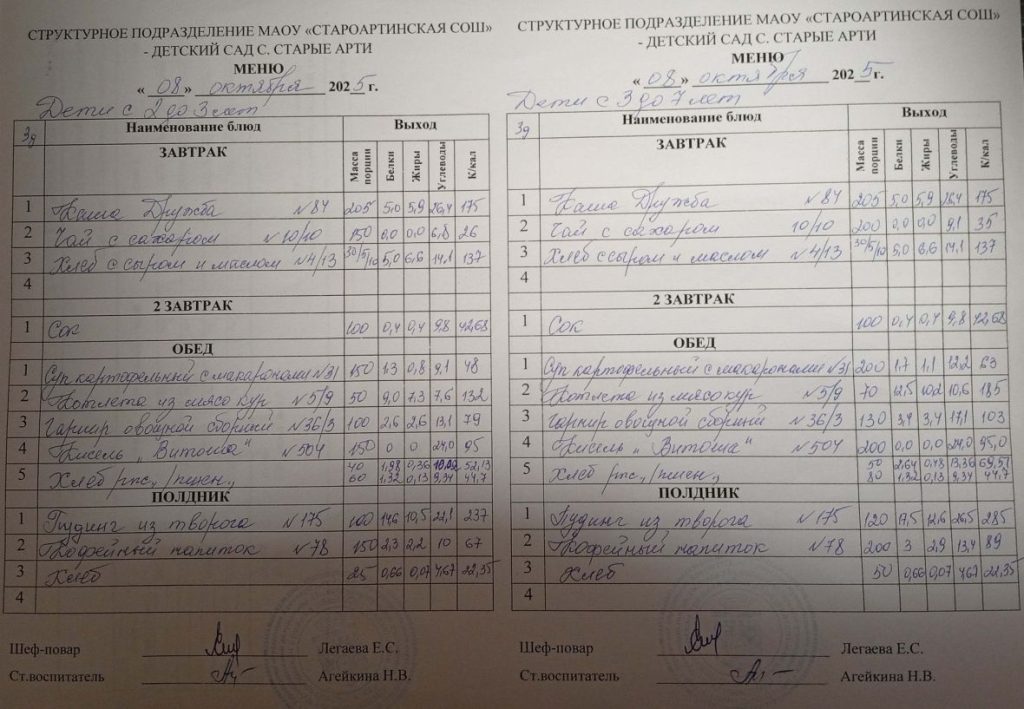 СТРУКТУРНОЕ ПОДРАЗДЕЛЕНИЕ МАОУ «СТАРОАРТИНСКАЯ СОШ»
- ДЕТСКИЙ САД С. СТАРЫЕ АРТИ
МЕНЮ
« 08 » октября 2025 г.
Дети с 2 до 3 лет
3д Наименование блюд Выход
ЗАВТРАК Масса порции Белки Жиры Углеводы К/кал
1 Каша Дружба №84 205 5,0 5,9 26,4 175
2 Чай с сахаром №10/10 150 0,0 0,0 6,8 26
3 Хлеб с сыром и маслом №4/13 30/5/10 5,0 6,6 14,1 137
4
2 ЗАВТРАК
1 Сок 100 0,4 0,4 9,8 42,68
ОБЕД
1 Суп картофельный с макаронами №31 150 1,3 0,8 9,1 48
2 Котлета из мясо кур №5/9 50 9,0 7,3 7,6 132
3 Гарнир овощной сборный №36/3 100 2,6 2,6 13,1 79
4 Кисель „Витошка" №504 150 0 0 24,0 95
5 Хлеб рж./пшен. 40 1,98 0,36 52,13
60 1,32 0,13 9,34 44,7
ПОЛДНИК
1 Пудинг из творога №175 100 14,6 10,5 22,1 237
2 Кофейный напиток №78 150 2,3 2,2 10 67
3 Хлеб 25 0,66 0,07 4,67 22,35
4
Шеф-повар Легаева Е.С.
Ст.воспитатель Агейкина Н.В.
СТРУКТУРНОЕ ПОДРАЗДЕЛЕНИЕ МАОУ «СТАРОАРТИНСКАЯ СОШ»
- ДЕТСКИЙ САД С. СТАРЫЕ АРТИ
МЕНЮ
« 08 » октября 2025 г.
Дети с 3 до 7 лет
3д Наименование блюд Выход
ЗАВТРАК Масса порции Белки Жиры Углеводы К/кал
1 Каша Дружба №84 205 5,0 5,9 26,4 175
2 Чай с сахаром 10/10 200 0,0 0,0 9,1 35
3 Хлеб с сыром и маслом №4/13 30/5/10 5,0 6,6 14,1 137
4
2 ЗАВТРАК
1 Сок 100 0,4 0,4 9,8 42,68
ОБЕД
1 Суп картофельный с макаронами №31 200 1,7 1,1 12,2 63
2 Котлета из мясо кур №5/9 70 12,5 10,2 10,6 185
3 Гарнир овощной сборный №36/3 130 3,4 3,4 17,1 103
4 Кисель „Витошка" №504 200 0,0 0,0 24,0 95,0
5 Хлеб рж./пшен. 50 2,64 0,48 13,36 69,57
80 1,32 0,13 9,34 44,7
ПОЛДНИК
1 Пудинг из творога №175 120 17,5 12,6 26,5 285
2 Кофейный напиток №78 200 3 2,9 13,4 89
3 Хлеб 50 0,66 0,07 4,67 22,35
4
Шеф-повар Легаева Е.С.
Ст.воспитатель Агейкина Н.В.